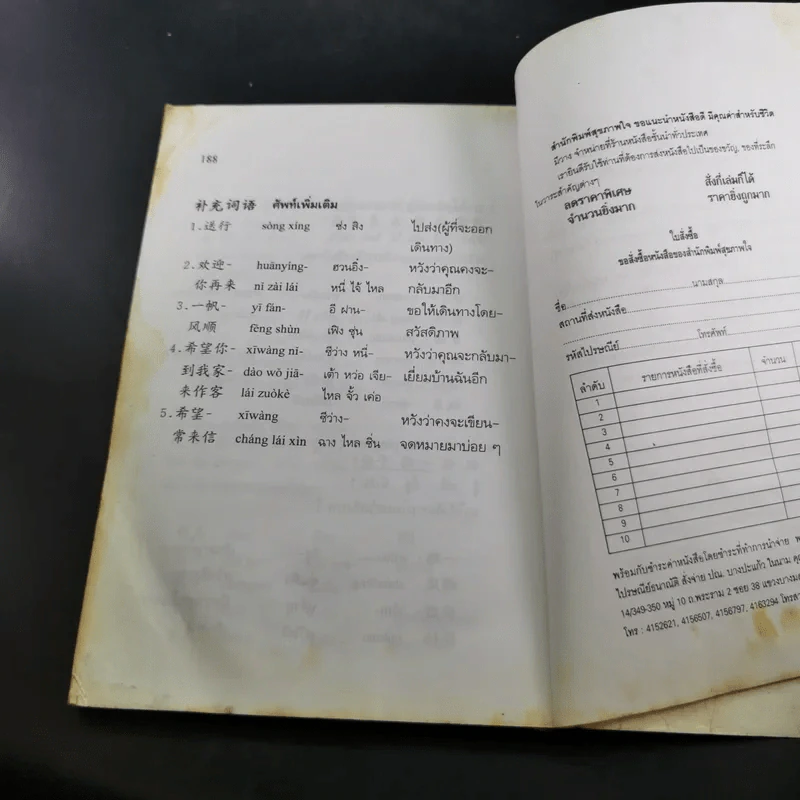 188
补充词语 ศัพท์เพิ่มเติม
1.送行 sòng xíng ซ่ง สิง ไปส่ง(ผู้ที่จะออก
เดินทาง)
2.欢迎- huānyíng- ฮวนอิ๋ง- หวังว่าคุณคงจะ-
你再来 nǐ zài lái หนี่ ไจ้ ไหล กลับมาอีก
3.一帆- yī fān- อี ฝาน- ขอให้เดินทางโดย-
风顺 fēng shùn เฟิง ซุ่น สวัสดิภาพ
4.希望你- xīwàng nǐ- ซีว่าง หนี่- หวังว่าคุณจะกลับมา-
到我家- dào wǒ jiā- เต้า หว่อ เจีย- เยี่ยมบ้านฉันอีก
来作客 lái zuòkè ไหล จั้ว เค่อ
5.希望- xīwàng ซีว่าง- หวังว่าคงจะเขียน-
常来信 cháng lái xìn ฉาง ไหล ซิ่น จดหมายมาบ่อย ๆ
สำนักพิมพ์สุขภาพใจ ขอแนะนำหนังสือดี มีคุณค่าสำหรับชีวิต
มีวาง จำหน่ายที่ร้านหนังสือชั้นนำทั่วประเทศ
เรายินดีรับใช้ท่านที่ต้องการส่งหนังสือไปเป็นของขวัญ, ของที่ระลึก
ในวาระสำคัญต่างๆ
ลดราคาพิเศษ สั่งกี่เล่มก็ได้
จำนวนยิ่งมาก ราคายิ่งถูกมาก
ใบสั่งซื้อ
ขอสั่งซื้อหนังสือของสำนักพิมพ์สุขภาพใจ
ชื่อ นามสกุล
สถานที่ส่งหนังสือ
รหัสไปรษณีย์ โทรศัพท์
ลำดับ รายการหนังสือที่สั่งซื้อ จำนวน
1
2
3
4
5
6
7
8
9
10
พร้อมกับชำระค่าหนังสือโดยชำระที่ทำการนำจ่าย
ไปรษณีย์ธนาณัติ สั่งจ่าย ปณ. บางปะแก้ว ในนาม
14/349-350 หมู่ 10 ถ.พระราม 2 ซอย 38 แขวงบางมด
โทร : 4152621, 4156507, 4156797, 4163294 โทรสาร